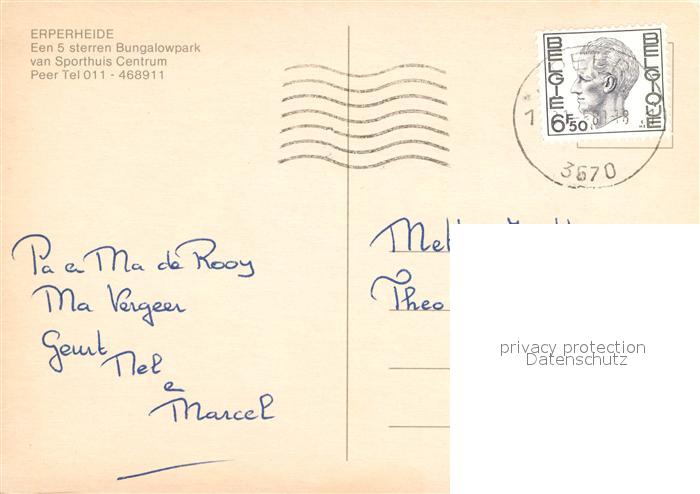 ERPERHEIDE
Een 5 sterren Bungalowpark
van Sporthuis Centrum
Peer Tel 011 - 468911
BELGIE
BELGIQUE
6F50
3670
Theo
Pa en Ma de Rooy
Ma Vergeer
Geurt
Nel
e
Marcel
privacy protection
Datenschutz